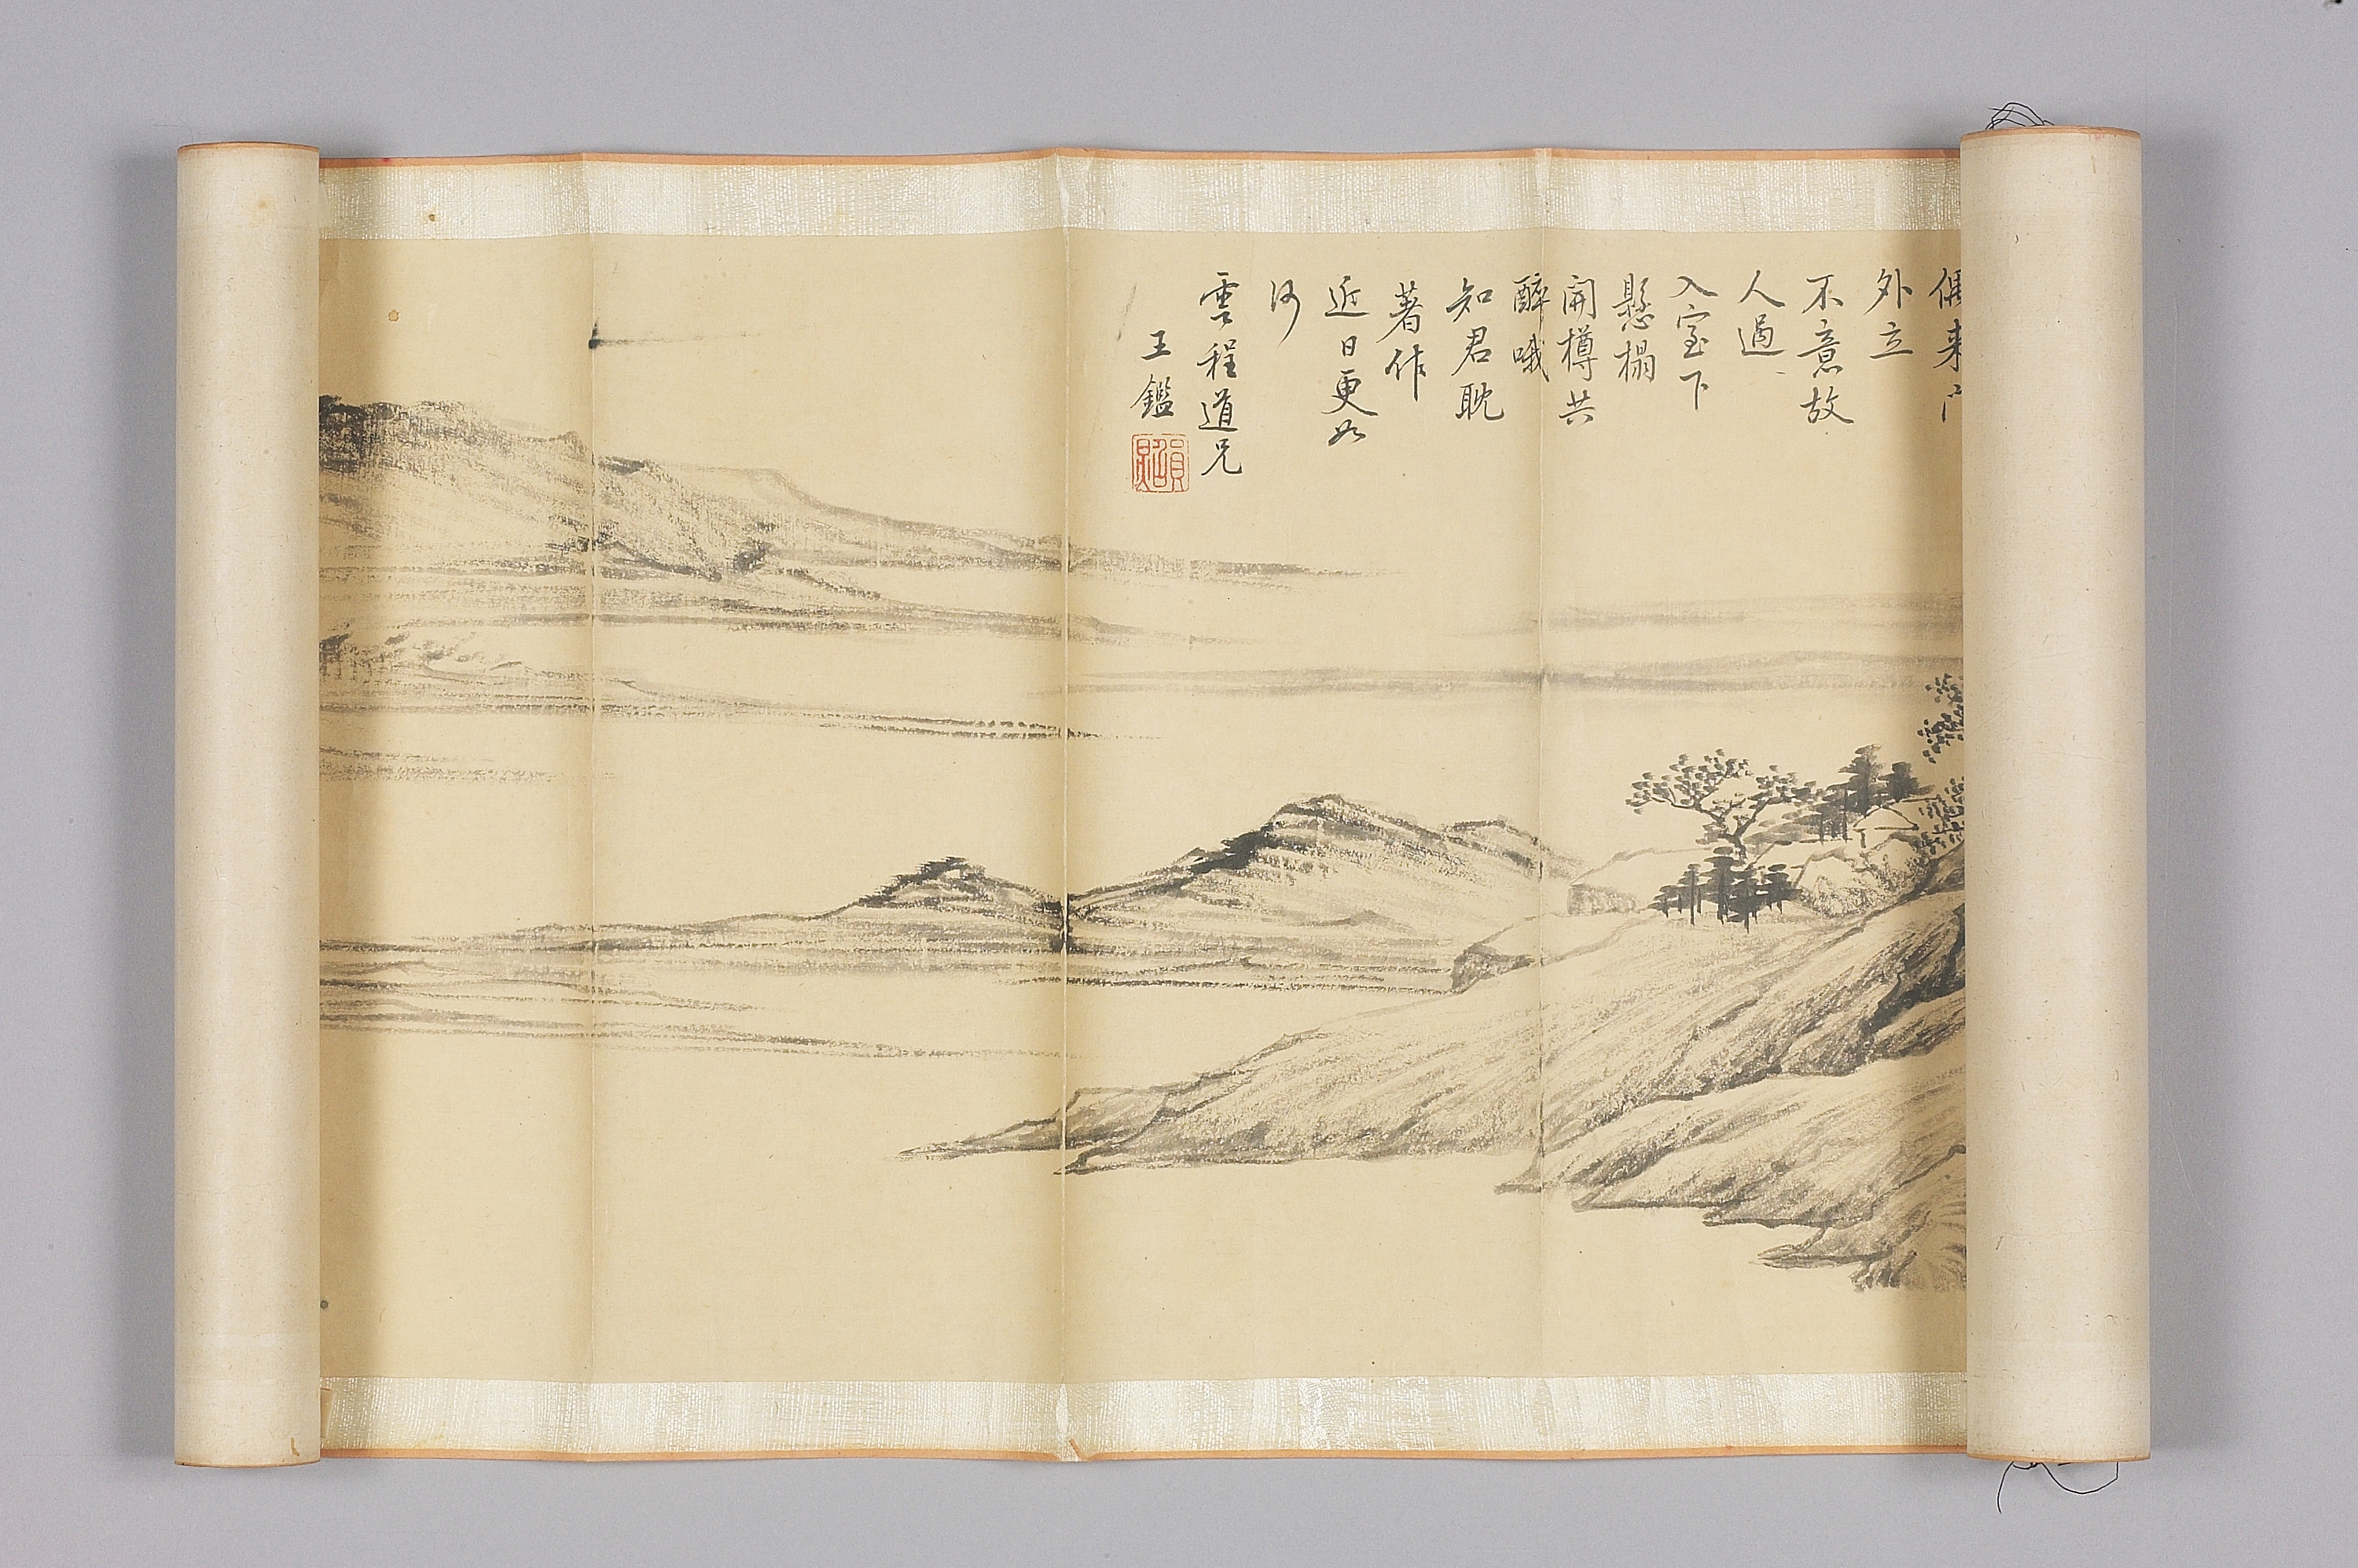 偶来門
外立
不意故
人過
入室下
懸榻
開樽共
醉哦
知君耽
著作
近日更如
何
雲程道兄
王鑑